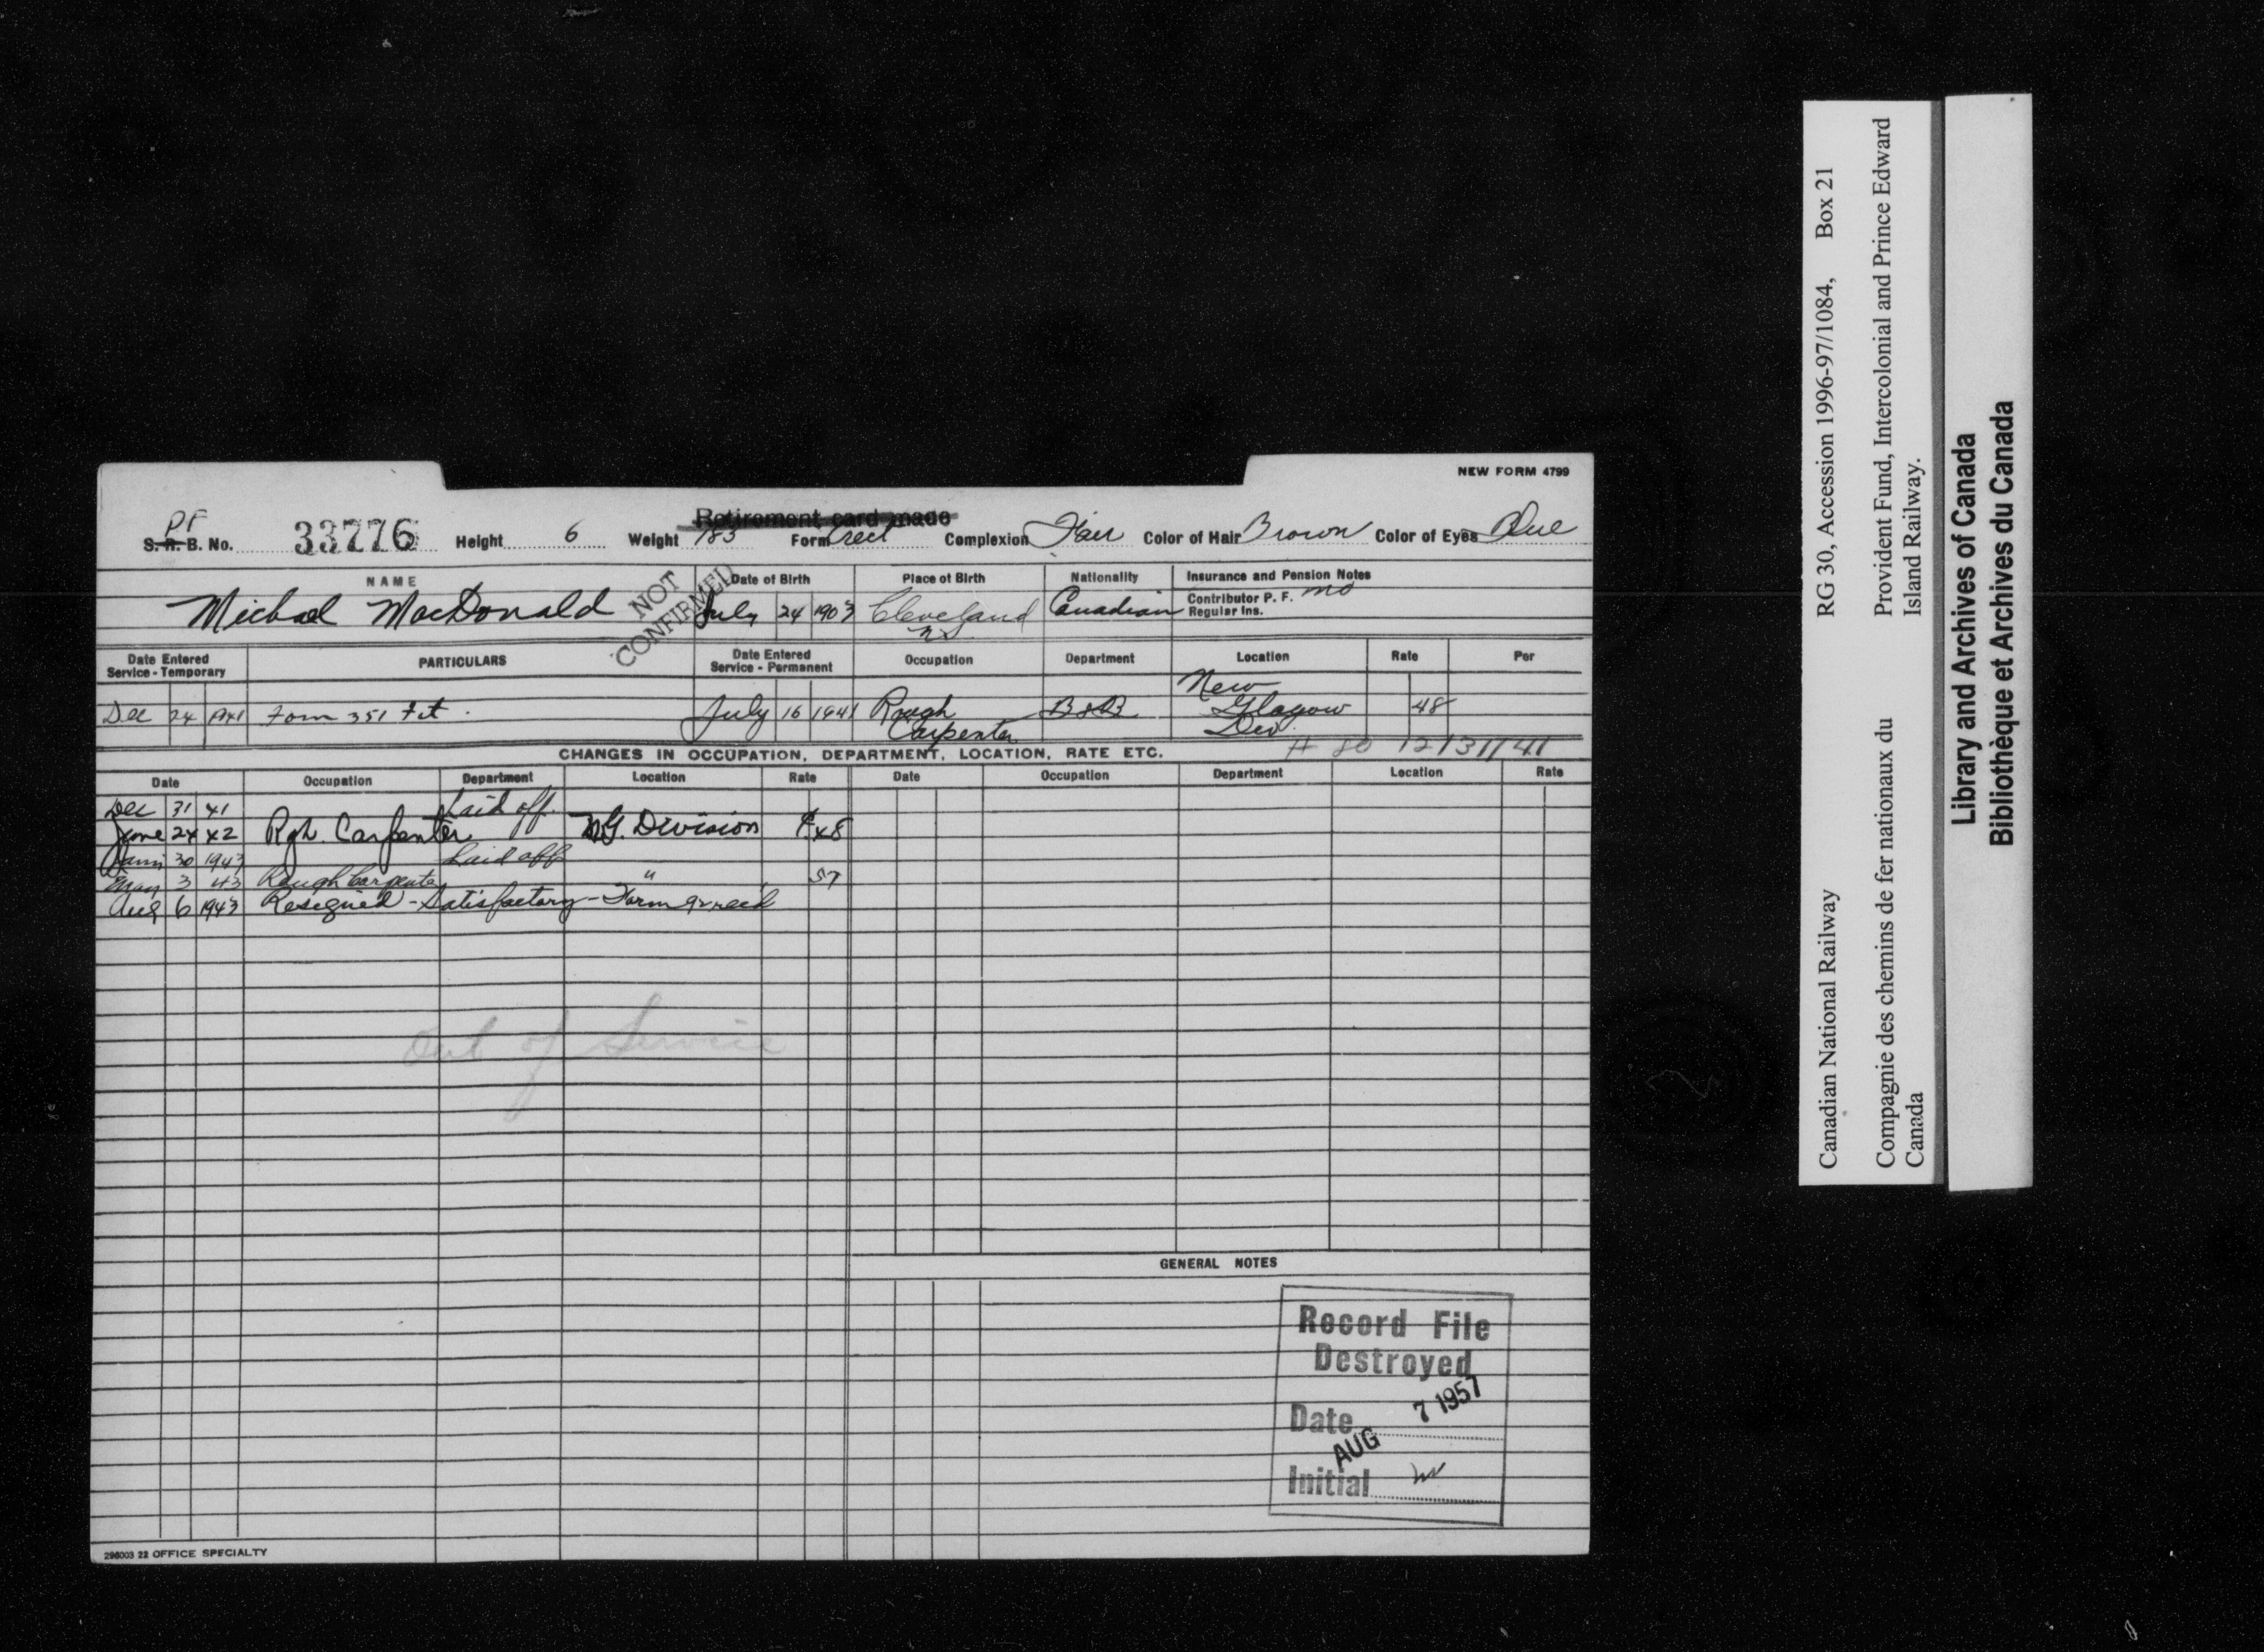 NEW FORM 4799
Retirement card made
PF
S. R. B. No. 33776 Height 6 Weight 183 Form Erect Complexion Fair Color of Hair Brown Color of Eyes Blue
NAME Date of Birth Place of Birth Nationality Insurance and Pension Notes
Contributor P. F. no
Michael MacDonald July 24 1903 Cleveland Canadian Regular Ins.
NS
NOT
CONFIRMED
Date Entered Service - Temporary PARTICULARS Date Entered Service - Permanent Occupation Department Location Rate Per
Dec 24 1941 Form 351 July 16 1941 Rough Carpenter B&B New Glagow Div. 48
CHANGES IN OCCUPATION, DEPARTMENT, LOCATION, RATE ETC. A 80 12/31/41
Date Occupation Department Location Rate Date Occupation Department Location Rate
Dec 31 41 Laid off.
June 24 42 Rgh. Carpenter N.G. Division 48
30 1943 Laid off
May 3 43 Rough Carpenter " 57
Aug 6 1943 Resigned - Satisfactory - Form
Out of Service
GENERAL NOTES
Record File
Destroyed
Date AUG 7 1957
Initial
296003 22 OFFICE SPECIALTY
Canadian National Railway RG 30, Accession 1996-97/1084, Box 21
Compagnie des chemins de fer nationaux du Provident Fund, Intercolonial and Prince Edward
Canada Island Railway.
Library and Archives of Canada
Bibliothèque et Archives du Canada